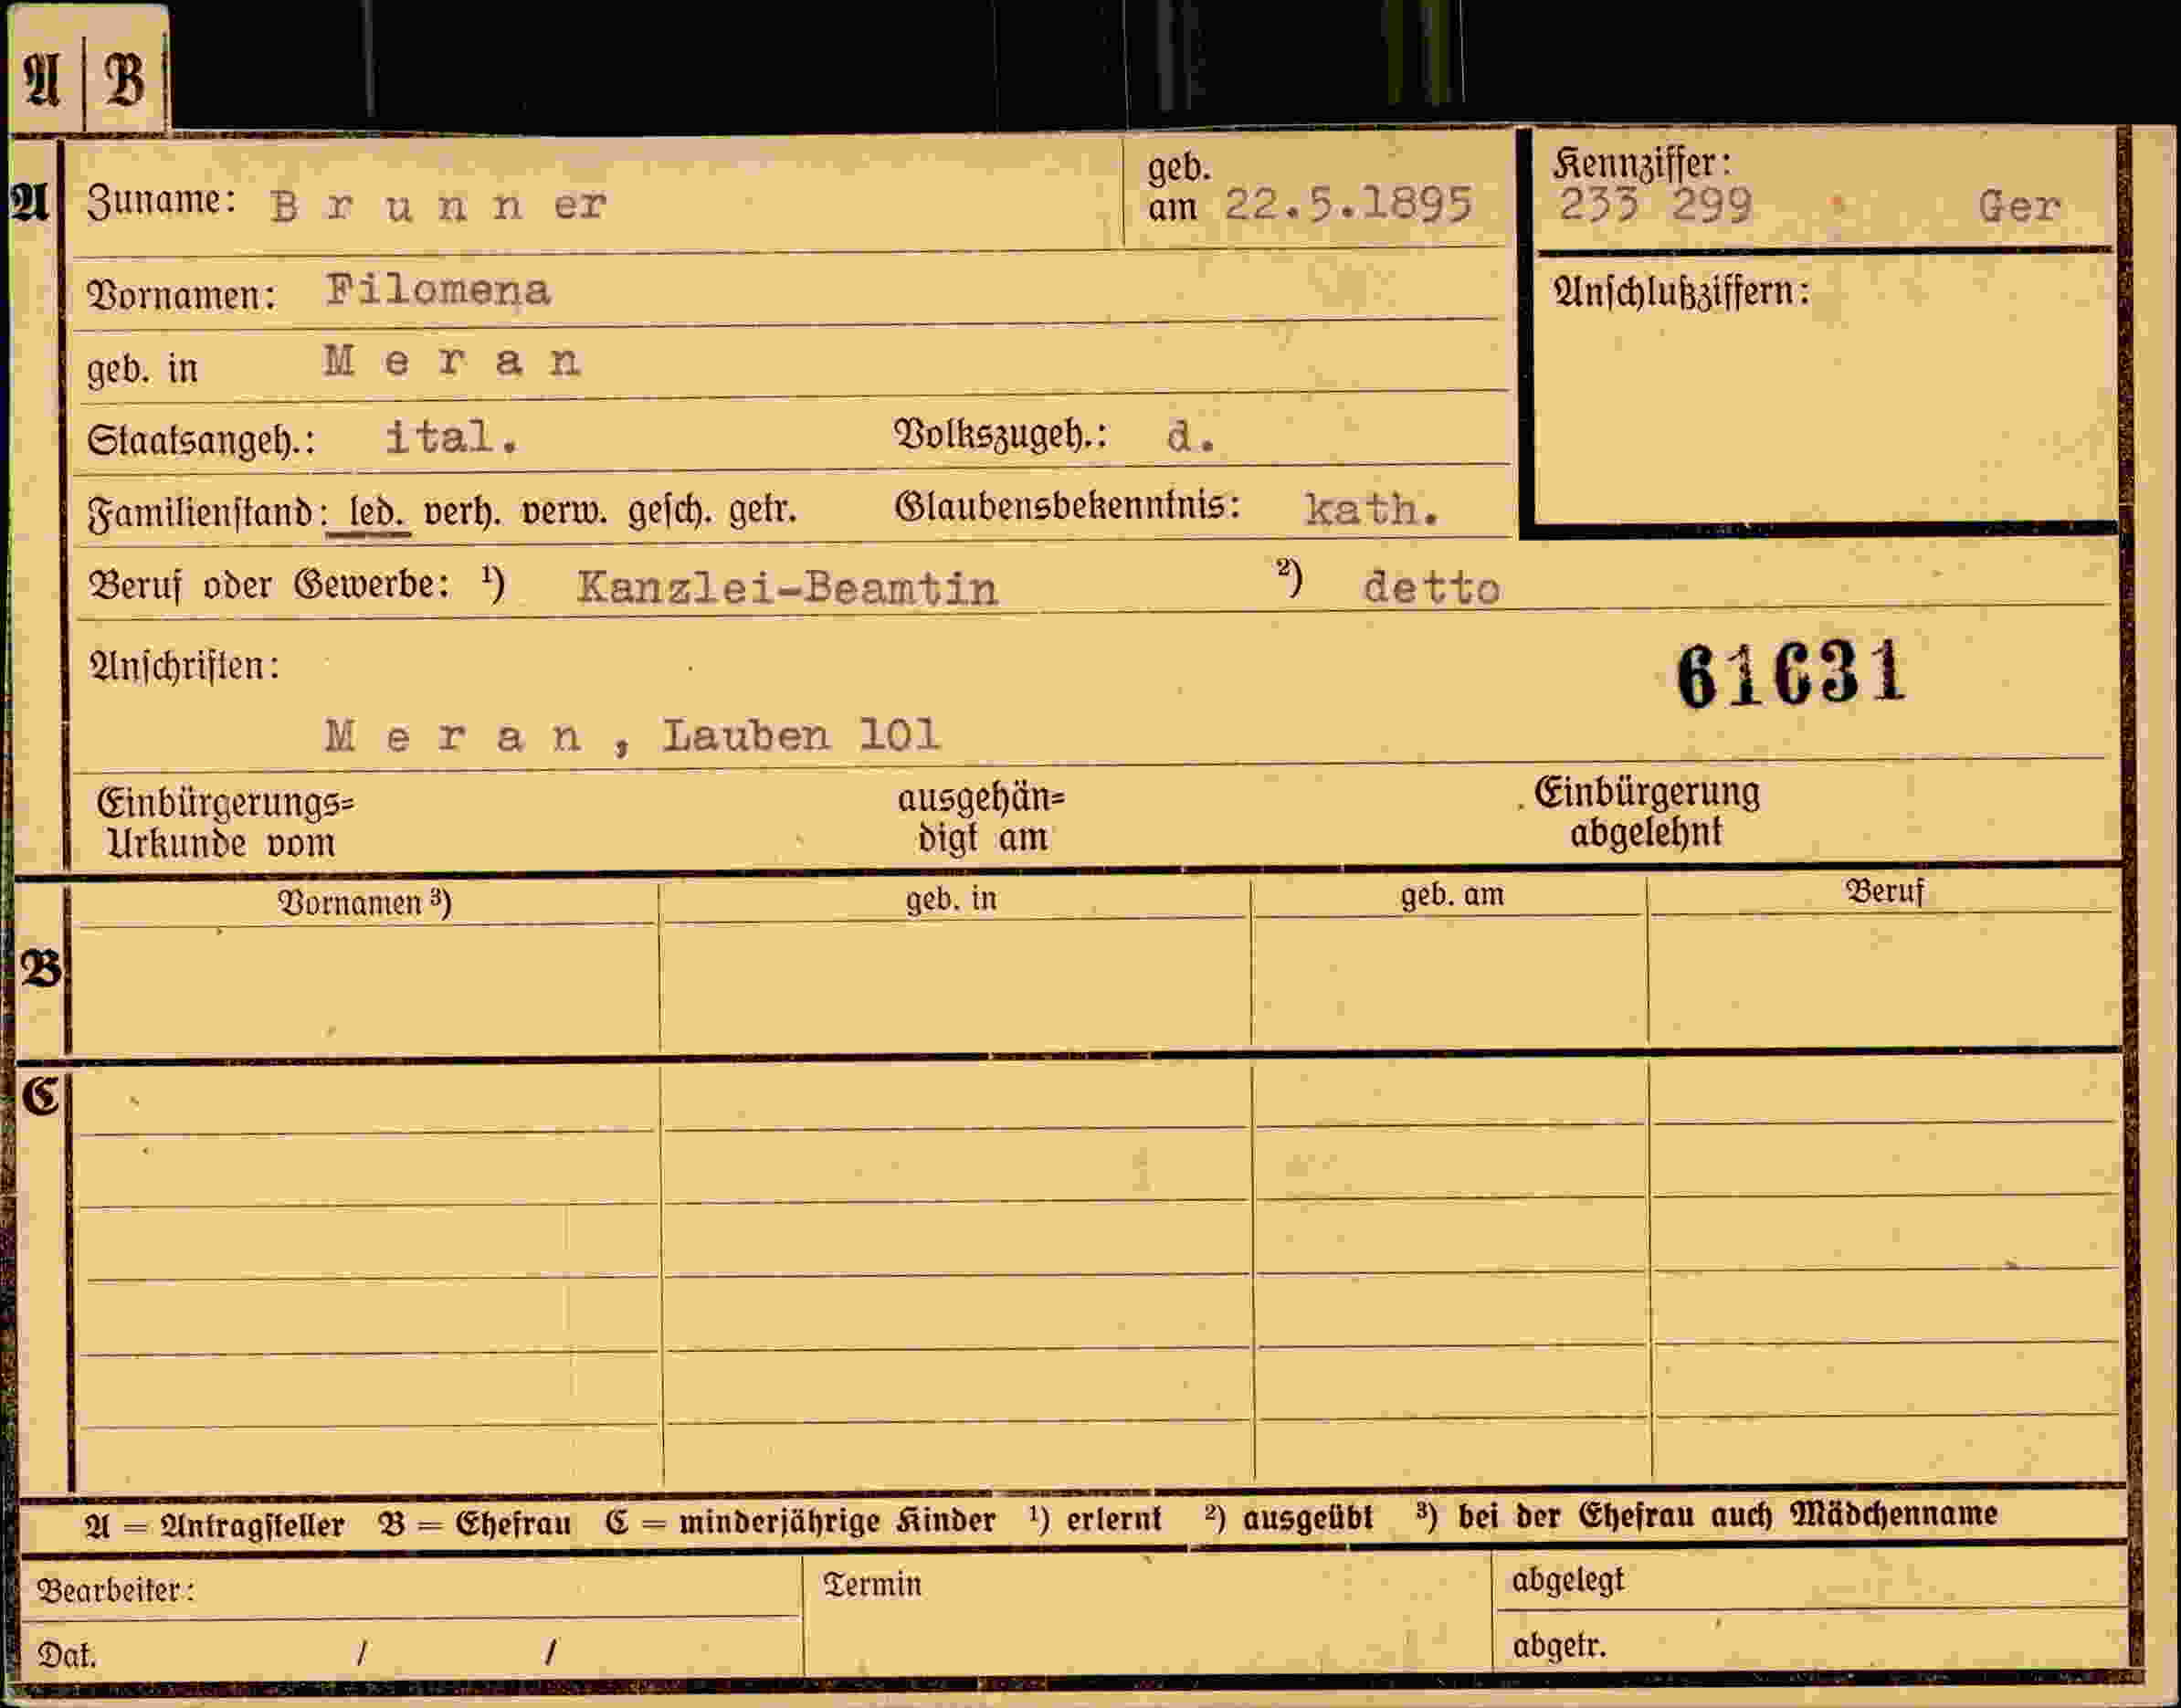 A | B
A Zuname: B r u n n er geb. am 22.5.1895 Kennziffer: 233 299 Ger
Vornamen: Filomena Anschlußziffern:
geb. in M e r a n
Staatsangeh.: ital. Volkszugeh.: d.
Familienstand: led. verh. verw. gesch. getr. Glaubensbekenntnis: kath.
Beruf oder Gewerbe: ¹) Kanzlei-Beamtin ²) detto
Anschriften: 61631
M e r a n , Lauben 101
Einbürgerungs= ausgehän= Einbürgerung
Urkunde vom digt am abgelehnt
Vornamen ³) geb. in geb. am Beruf
B
C
A = Antragsteller B = Ehefrau C = minderjährige Kinder ¹) erlernt ²) ausgeübt ³) bei der Ehefrau auch Mädchenname
Bearbeiter: Termin abgelegt
Dat. / / abgetr.